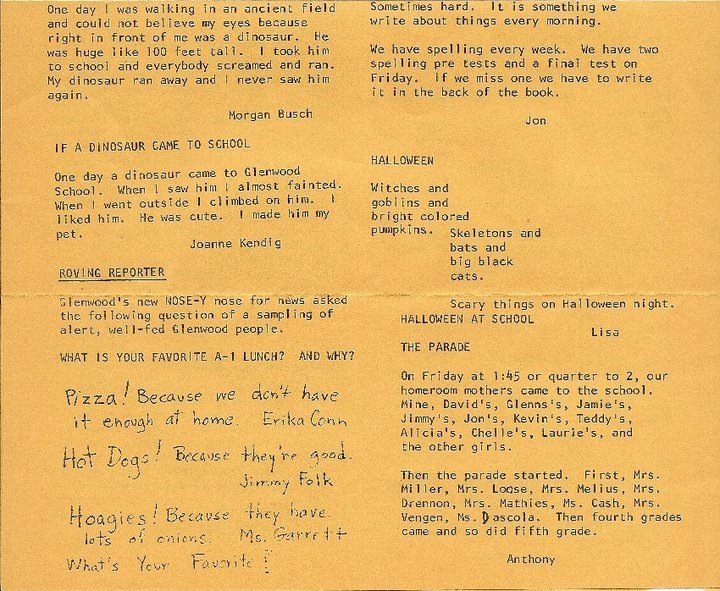 One day I was walking in an ancient field
and could not believe my eyes because
right in front of me was a dinosaur. He
was huge like 100 feet tall. I took him
to school and everybody screamed and ran.
My dinosaur ran away and I never saw him
again.
Morgan Busch
IF A DINOSAUR CAME TO SCHOOL
One day a dinosaur came to Glenwood
School. When I saw him I almost fainted.
When I went outside I climbed on him. I
liked him. He was cute. I made him my
pet.
Joanne Kendig
ROVING REPORTER
Glenwood's new NOSE-Y nose for news asked
the following question of a sampling of
alert, well-fed Glenwood people.
WHAT IS YOUR FAVORITE A-1 LUNCH? AND WHY?
Pizza! Because we don't have
it enough at home. Erika Conn
Hot Dogs! Because they're good.
Jimmy Folk
Hoagies! Because they have
lots of onions. Ms. Garrett
What's Your Favorite!
Sometimes hard. It is something we
write about things every morning.
We have spelling every week. We have two
spelling pre tests and a final test on
Friday. If we miss one we have to write
it in the back of the book.
Jon
HALLOWEEN
Witches and
goblins and
bright colored
pumpkins.
Skeletons and
bats and
big black
cats.
Scary things on Halloween night.
HALLOWEEN AT SCHOOL
Lisa
THE PARADE
On Friday at 1:45 or quarter to 2, our
homeroom mothers came to the school.
Mine, David's, Glenns's, Jamie's,
Jimmy's, Jon's, Kevin's, Teddy's,
Alicia's, Chelle's, Laurie's, and
the other girls.
Then the parade started. First, Mrs.
Miller, Mrs. Loose, Mrs. Melius, Mrs.
Drennon, Mrs. Mathies, Ms. Cash, Mrs.
Vengen, Ms. Dascola. Then fourth grades
came and so did fifth grade.
Anthony